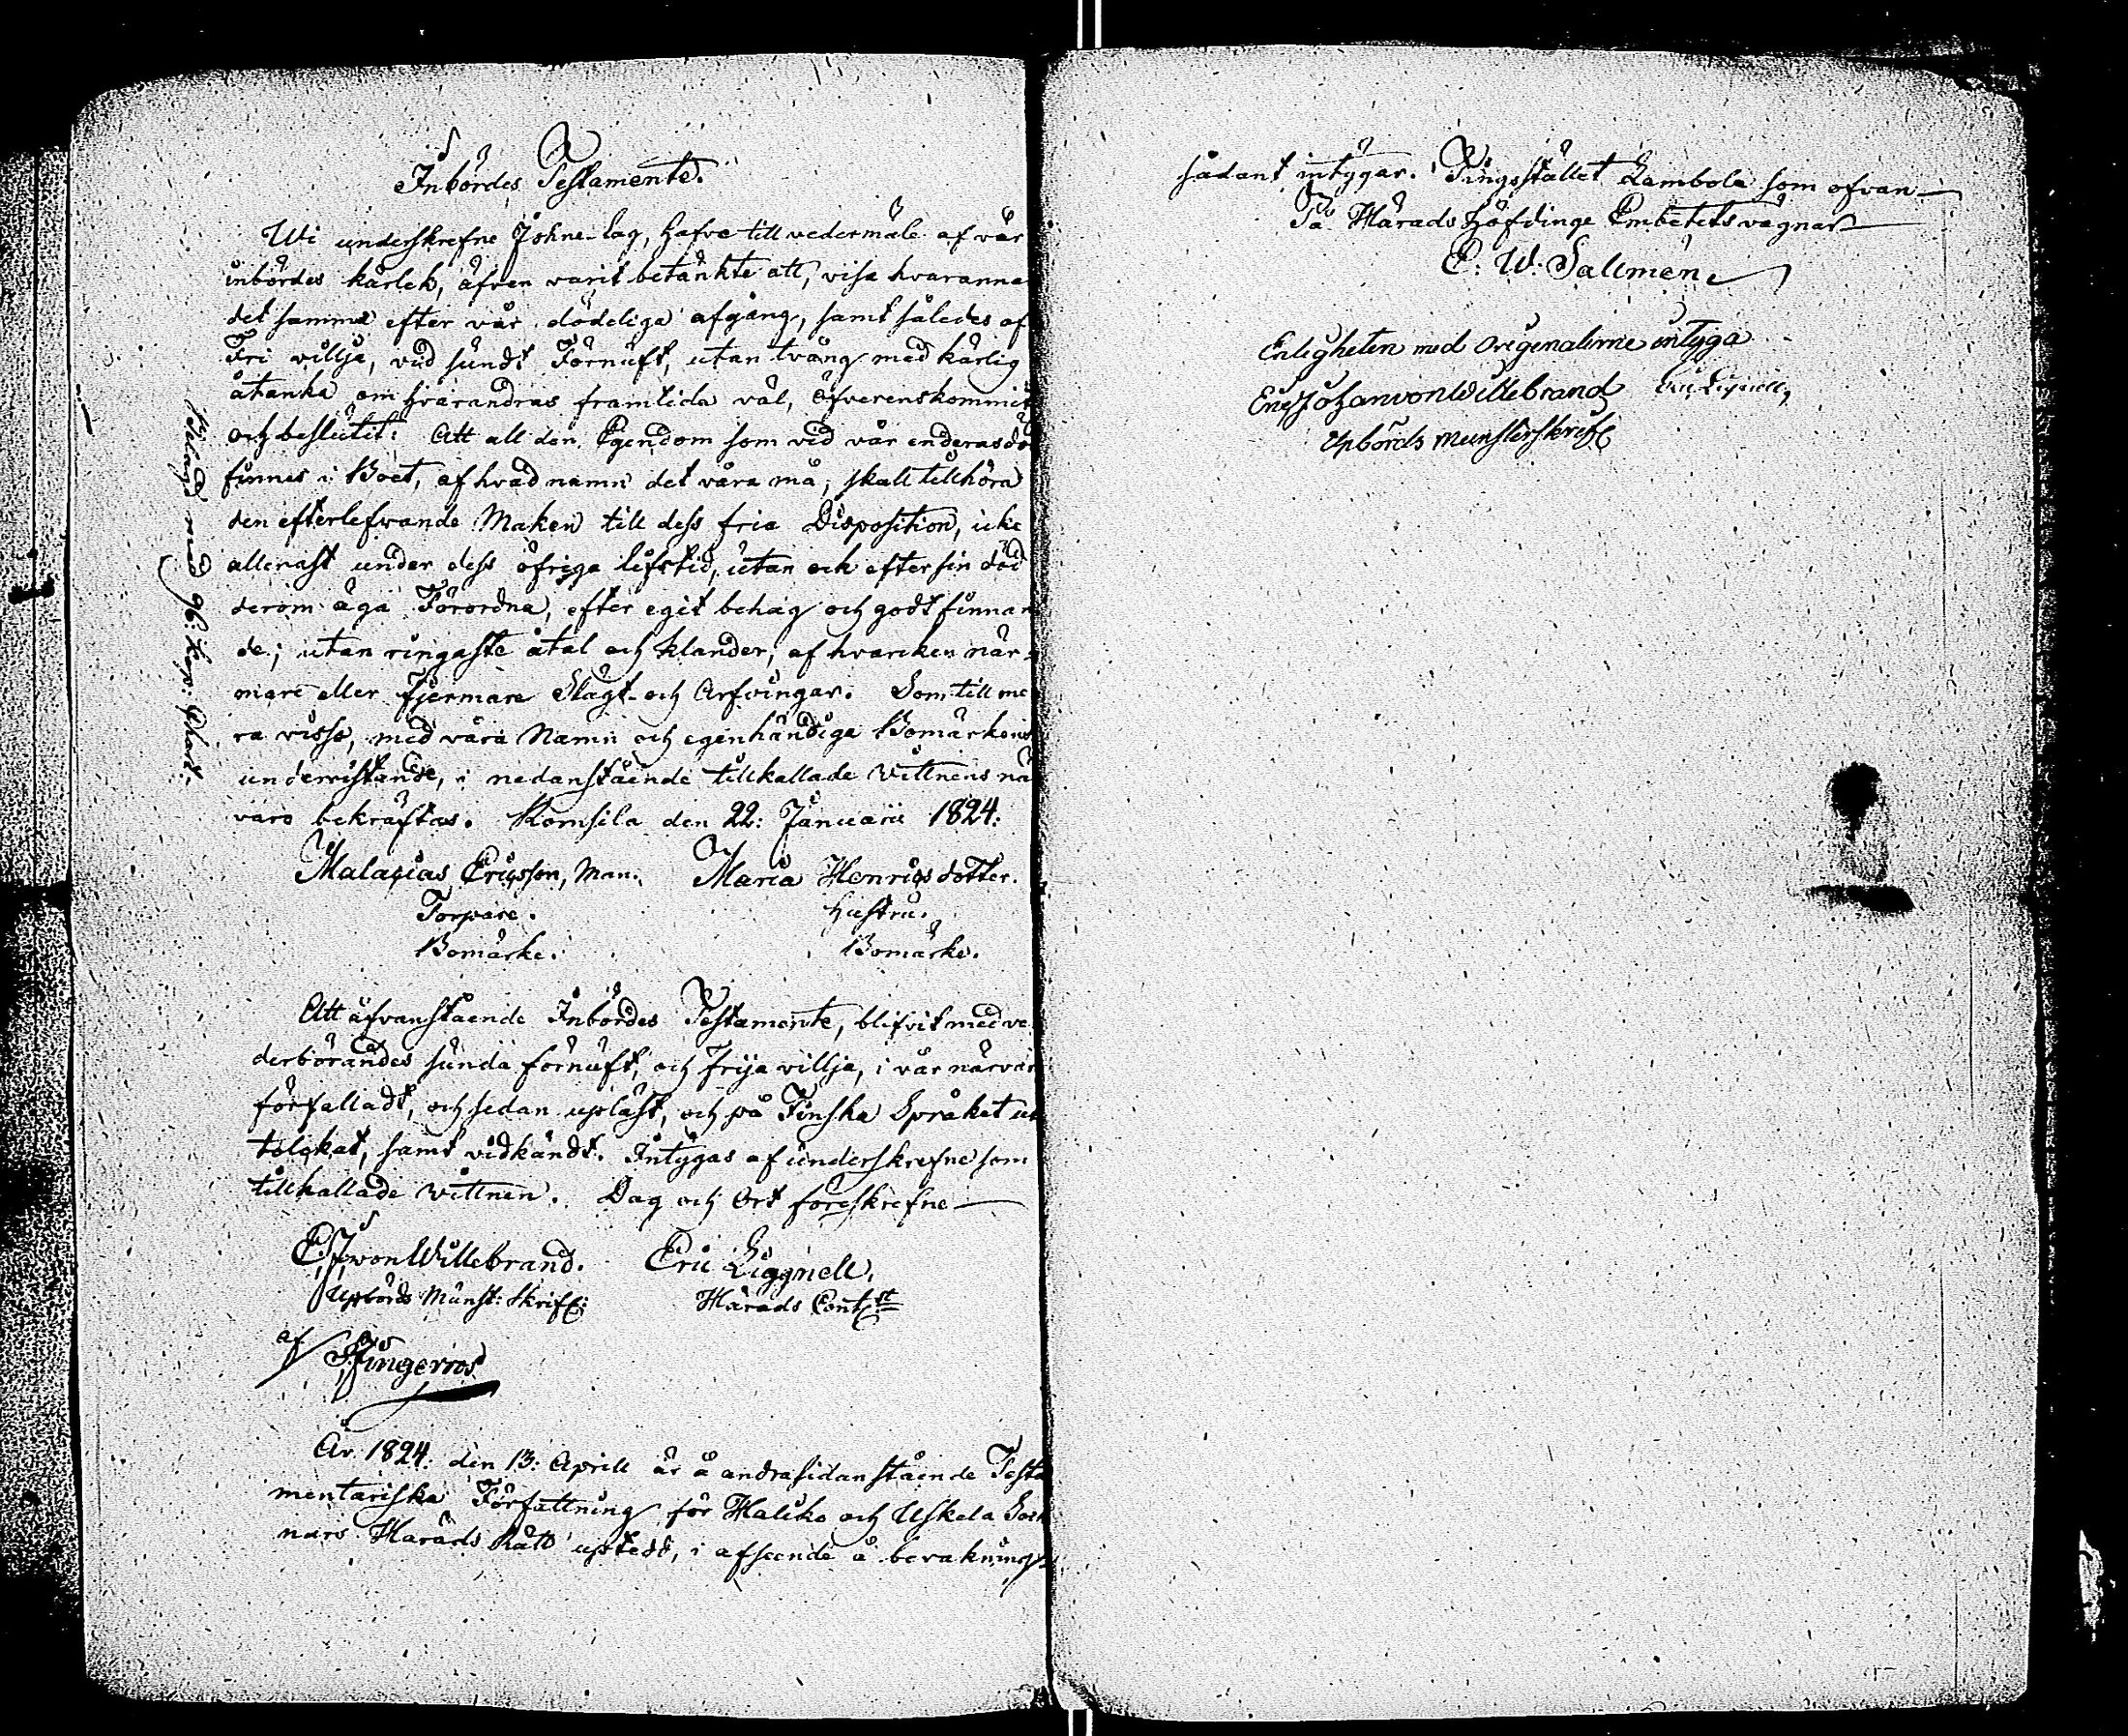 Inbördes Testamente.
Wi underskrefne Johne-lag, hafve till vedermäle af vår
inbördes kärlek, äfven varit betänkte att, visa hvaranna
det samma efter vår dödeliga afgång, samt således af
Fri villje, vid sundt Förnuft, utan tvång med kärlig
åtanka om hvarandras framtida väl, öfverenskommit
och beslutit: Att all den Egendom som vid vår enderas dö
finnes i Boet, af hvad namn det vara må, skall tillhöra
den efterlefvande Maken till dess fria Disposition, icke
allenast under dess öfriga lifstid, utan och efter sin död
derom äga Förordna, efter egit behag och godt finnan
de; utan ringaste åtal och klander, af hvarcken när-
mare eller fjermare Slägt- och Arfvingar. Som till me
ra visso, med våra Namn och egenhändiga Bomärkens
underristande, i nedanstående tillkallade Vittnens nä
varo bekräftas. Komsila den 22: Januarii 1824:
Malacias Ericsson, Man. Maria Henricsdotter.
Torpare. Hustru.
Bomärke. Bomärke.
Belagd med 96: kop: Chart:
Att äfvanstående Inbördes Testamente, blifvit med ve
derbörandes sunda förnuft, och Frija villja, i vår närvar
förfalladt, och sedan upläst, och på Finska Språket ut
tolckat, samt vidkändt. Intygas af underskrefne som
tillkallade Vittnen. Dag och Ort föreskrefne
E. J. von Willebrand. Eric Liggnell.
Upbörds Munst: Skrif: Härads Cont:st
af Fingerroos
År 1824: den 13: Aprill är å andra sidan stående Testa
mentariska Författning för Haliko och Uskela Sock
nars Härads Rätt uptedd, i afseende å bevakning
sådant intygar. Tingsstället Lambola som ofvan
På Härads Höfdinge Embetets vägnar
E: W: Sallmén
Enligheten med Originalerne intyga
Eric Johan von Willebrand Eric Lignell,
Upbörds Munsterskrif: